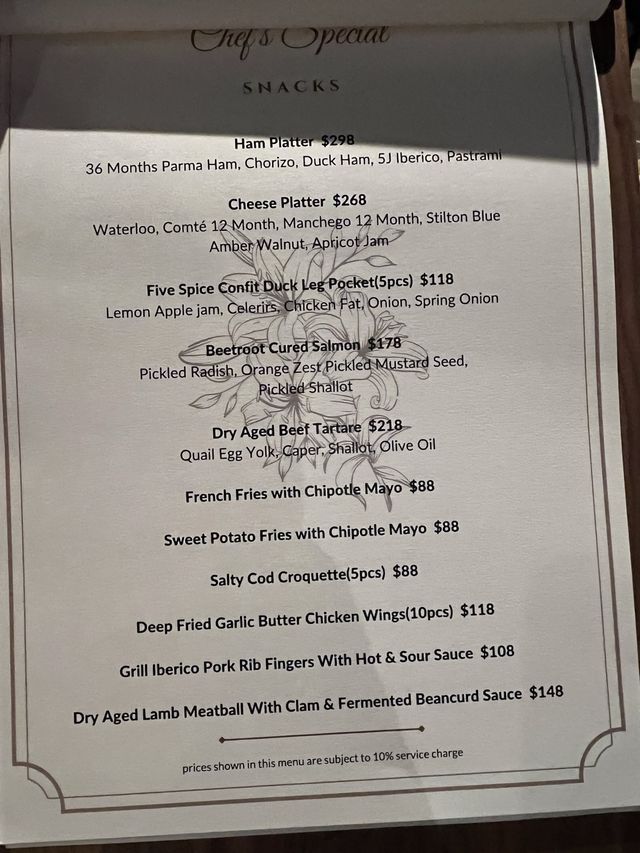 Chef's Special
SNACKS
Ham Platter $298
36 Months Parma Ham, Chorizo, Duck Ham, 5J Iberico, Pastrami
Cheese Platter $268
Waterloo, Comté 12 Month, Manchego 12 Month, Stilton Blue
Amber Walnut, Apricot Jam
Five Spice Confit Duck Leg Pocket(5pcs) $118
Lemon Apple jam, Celerirs, Chicken Fat, Onion, Spring Onion
Beetroot Cured Salmon $178
Pickled Radish, Orange Zest Pickled Mustard Seed,
Pickled Shallot
Dry Aged Beef Tartare $218
Quail Egg Yolk, Caper, Shallot, Olive Oil
French Fries with Chipotle Mayo $88
Sweet Potato Fries with Chipotle Mayo $88
Salty Cod Croquette(5pcs) $88
Deep Fried Garlic Butter Chicken Wings(10pcs) $118
Grill Iberico Pork Rib Fingers With Hot & Sour Sauce $108
Dry Aged Lamb Meatball With Clam & Fermented Beancurd Sauce $148
prices shown in this menu are subject to 10% service charge